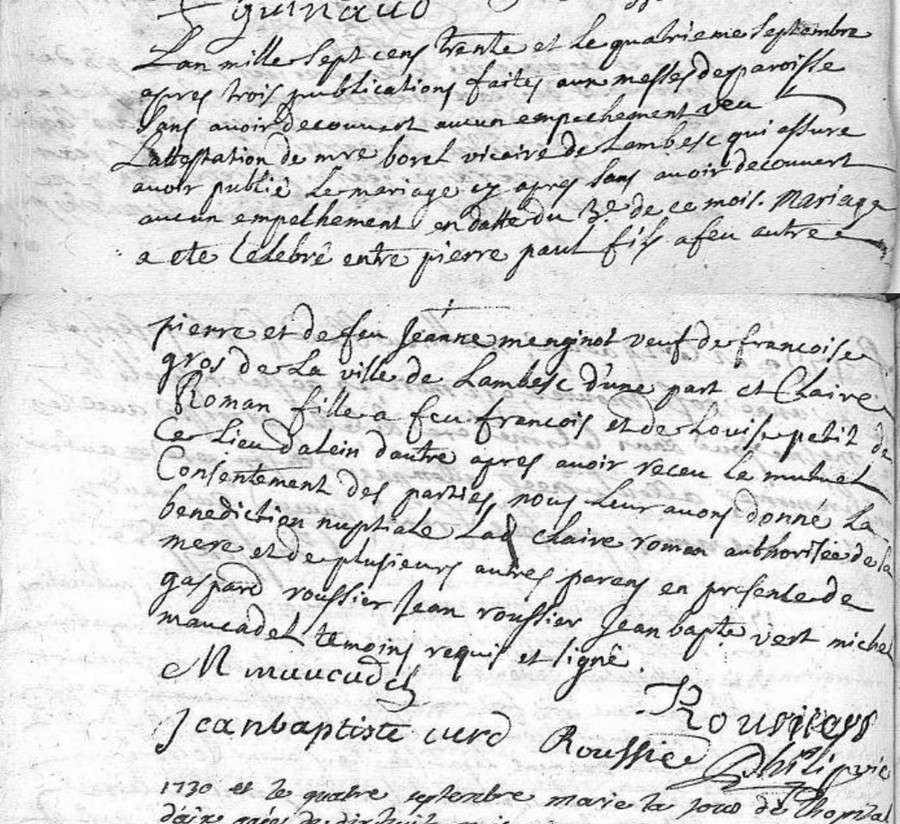 guinaud
Lan mille sept cens trente et le quatrieme septembre
apres trois publications faites aux messes de paroisse
sans avoir decouvert aucun empechement veu
Lattestation de mre borel vicaire de Lambesc qui assure
avoir publié le mariage cy apres sans avoir decouvert
aucun empechement en datte du 3e de ce mois. Mariage
a ete celebré entre pierre paul fils a feu autre
pierre et de feu Jeanne menginot veuf de francoise
gros de La ville de Lambesc d'une part et Claire
Roman fille a feu francois et de Louise petit de
ce Lieu dalein dautre apres avoir receu le mutuel
Consentement des parties nous leur avons donné La
benediction nuptiale Lad Claire roman authorisée de la
mere et de plusieurs autres parens en presence de
gaspard roussier Jean roussier Jean bapte vert michel
maucadel temoins requis et signé.
M maucadel
Rousiers
Jean baptiste verd Roussie
philip
1730 et le quatre septembre marie la de lhopital